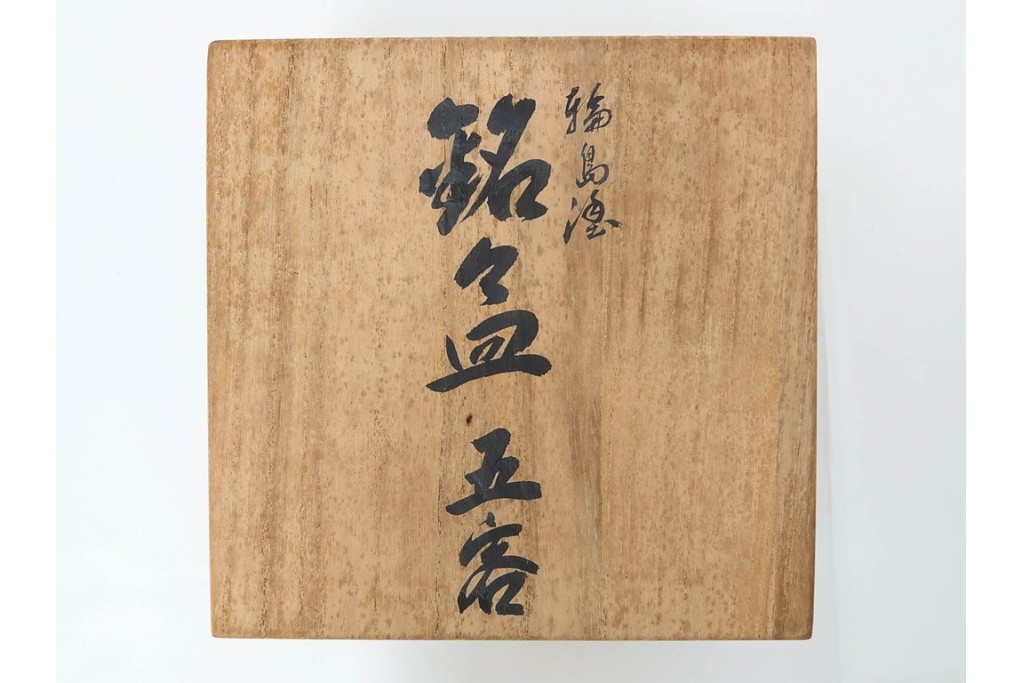 輪島塗
銘々皿 五客